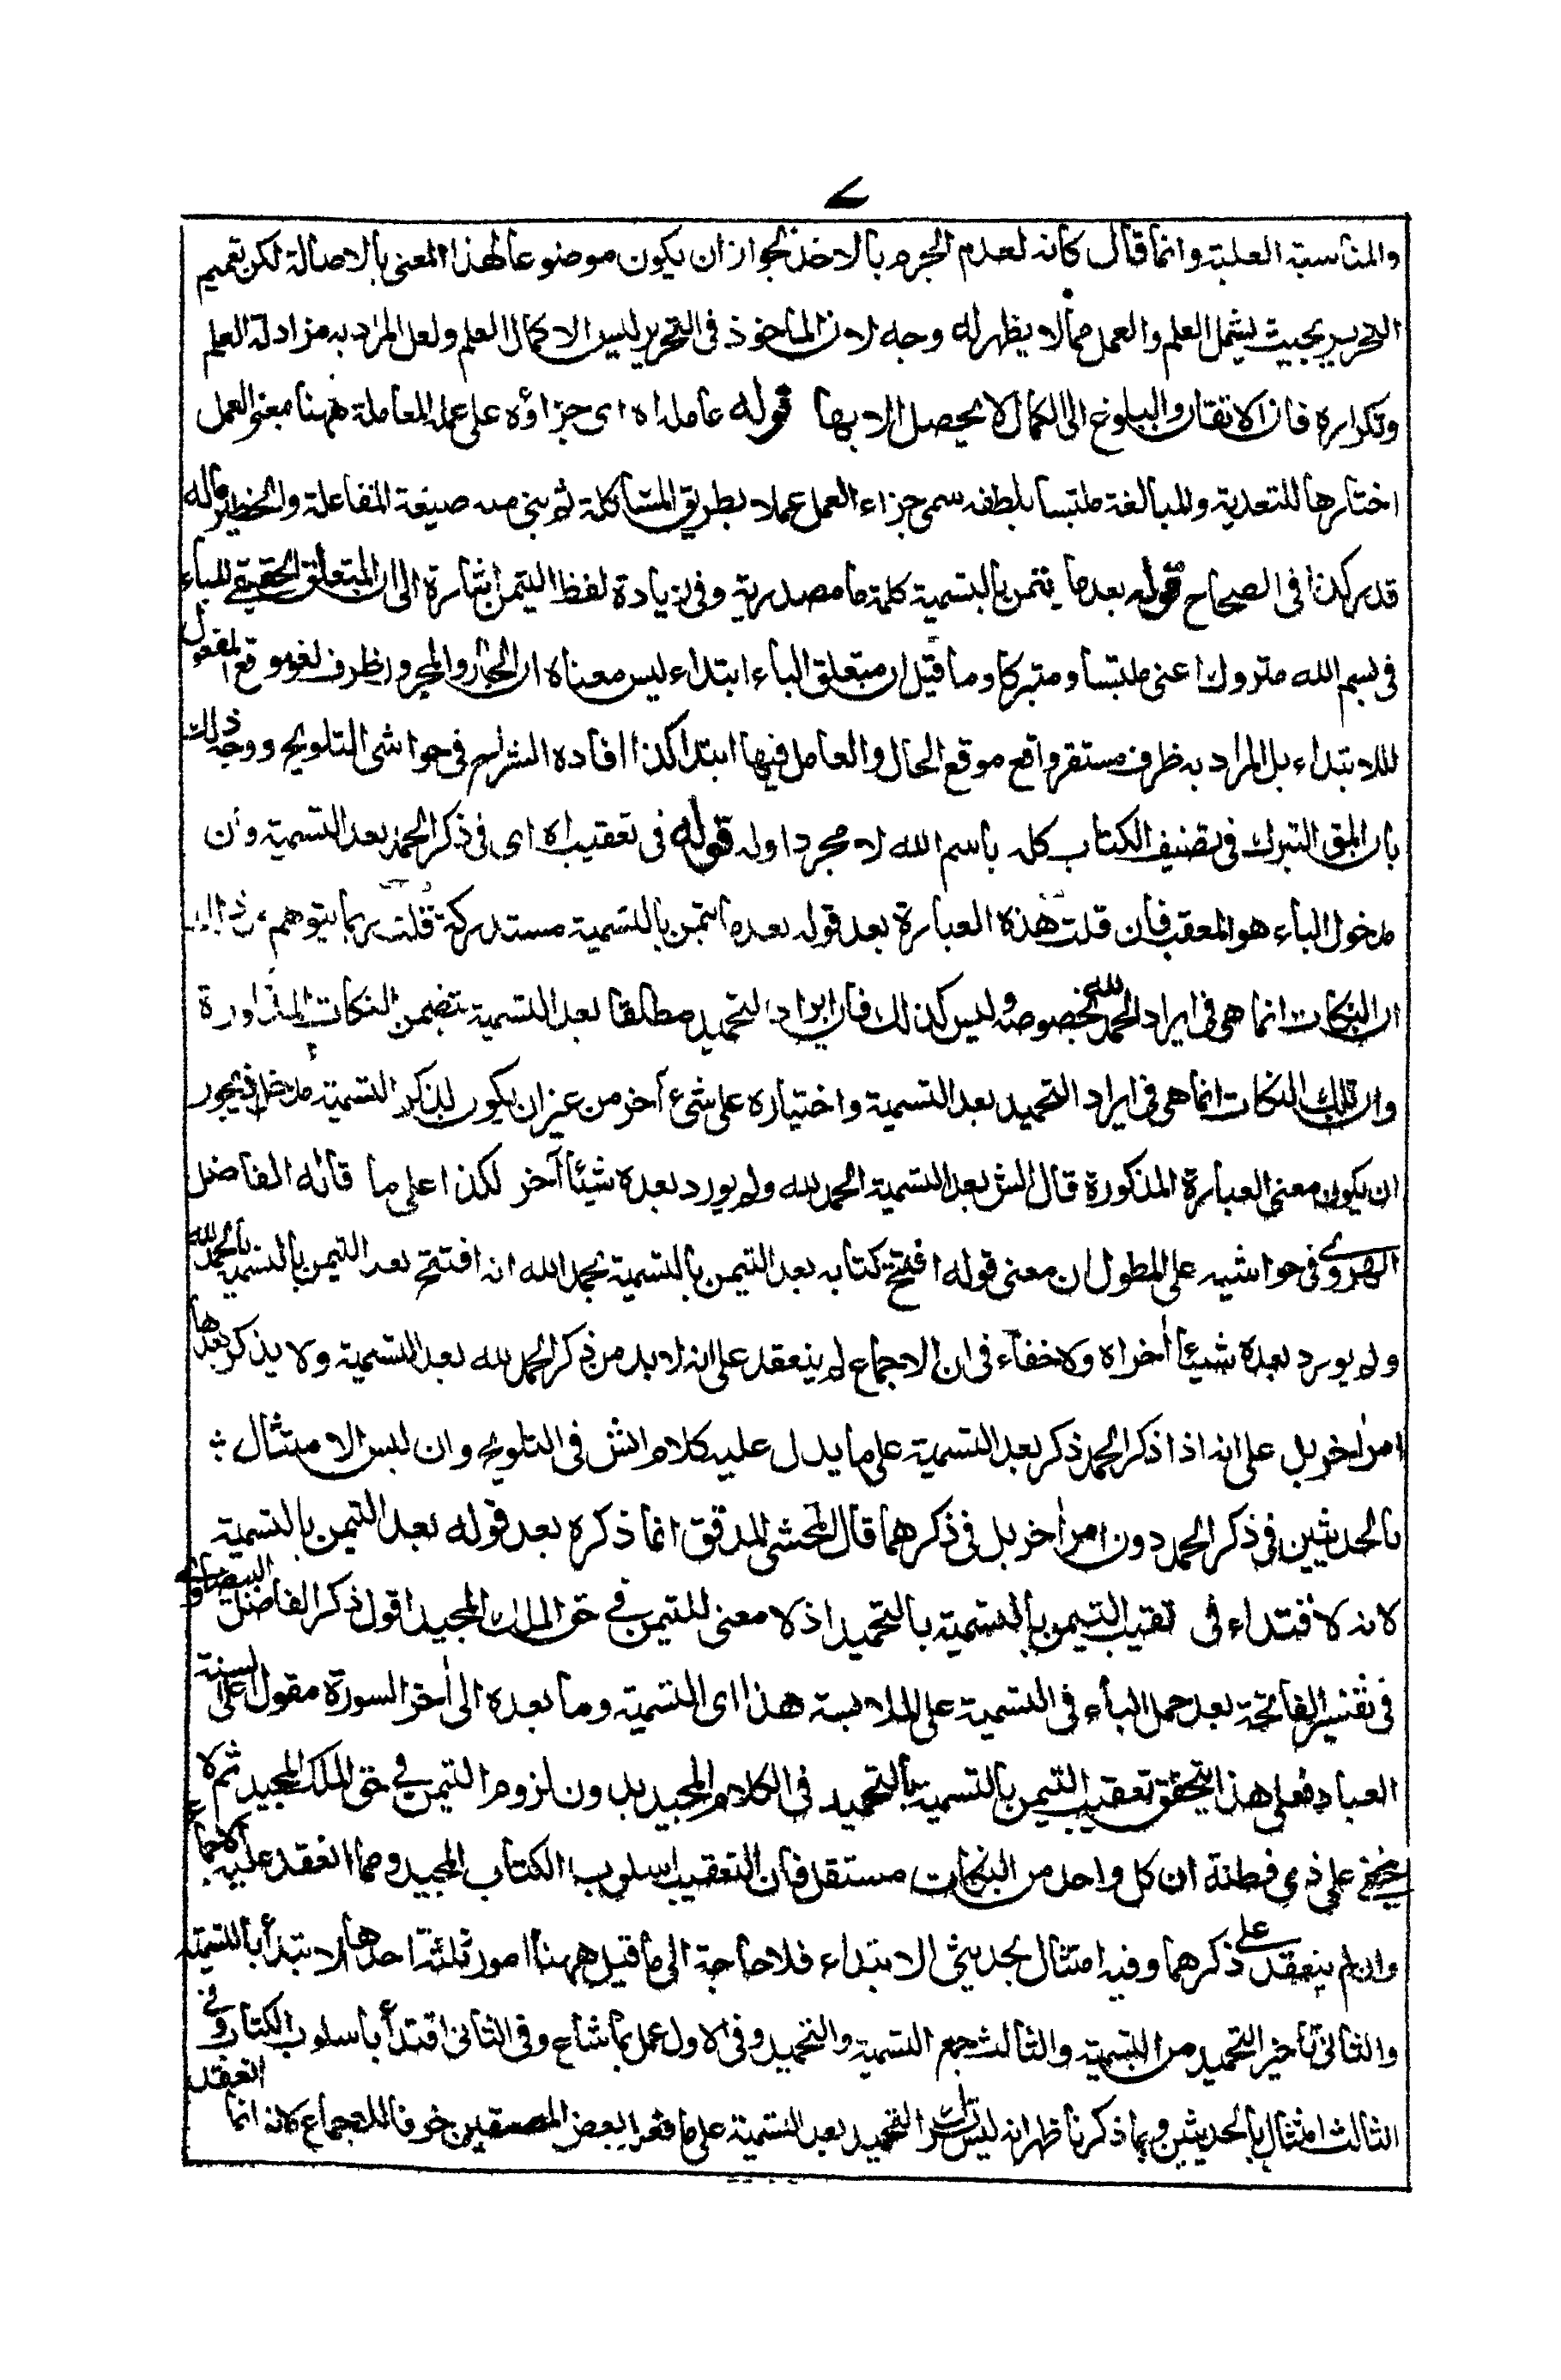 ٧
والمناسبة العلية وانما قال كانه لعدم الجزم بالاخذ لجواز ان يكون موضوعا لهذا المعنى بالاصالة لكن تعميم
النحرير بحيث يشمل العلم والعمل مما لا يظهر له وجه لان الماخوذ فى النحرير ليس الا كمال العلم ولعل المراد به مزاولة العلم
وتكراره فان الاتقان والبلوغ الى الكمال لا يحصل الا بها قوله عامله اه اى جزاؤه على عمله المعاملة ههنا بمعنى العمل
اختارها للتعدية وللمبالغة ملتبسا بلطفه سمى جزاء العمل عملا بطريق المشاكلة ثم بنى منه صيغة المفاعلة والخطير ماله
قدر كذا فى الصحاح قوله بعد ما تيمن بالتسمية كلمة ما مصدرية وفى زيادة لفظ التيمن اشارة الى ان المتعلق الحقيقي للباء
فى بسم الله متروك اعنى ملتبسا ومتبركا وما قيل ان متعلق الباء ابتداء ليس معناه ان الجار والمجرور ظرف لغو موقع المفعول
للابتداء بل المراد به ظرف مستقر واقع موقع الحال والعامل فيها ابتدا كذا افاده الشارح فى حواشى التلويح ووجه ذلك
بان المق التبرك فى تصنيف الكتاب كله باسم الله لا مجرد اوله قوله فى تعقيب اه اى فى ذكر الحمد بعد التسمية وان
مدخول الباء هو المعقب فان قلت هذه العبارة بعد قوله بعد ما تيمن بالتسمية مستدركة قلت ربما يتوهم
ان النكات انما هى فى ايراد الحمد لله بخصوصه وليس كذلك فان ايراد التحميد مطلقا بعد التسمية تتضمن النكات المذكورة
وان تلك النكات انما هى فى ايراد التحميد بعد التسمية واختياره على شىء آخر من غير ان يكون لذكر التسمية مدخل فيجوز
ان يكون معنى العبارة المذكورة قال الش بعد التسمية الحمد لله ولم يورد بعده شيئا آخر لكذا على ما قاله الفاضل
الهروى فى حواشيه على المطول ان معنى قوله افتتح كتابه بعد التيمن بالتسمية بحمد الله انه افتتح بعد التيمن بالتسمية بالحمد لله
ولم يورد بعده شيئا آخر اه ولا خفاء فى ان الاجماع لم ينعقد على انه لا بد من ذكر الحمد لله بعد التسمية ولا يذكر بعدها
امر اخر بل على انه اذا ذكر الحمد ذكر بعد التسمية على ما يدل عليه كلام الش فى التلويح وان ليس الامتثال
بالحديثين فى ذكر الحمد دون امر اخر بل فى ذكرهما قال المحشى المدقق انما ذكره بعد قوله بعد التيمن بالتسمية
لانه لا اقتداء فى تعقيب التيمن بالتسمية بالتحميد اذ لا معنى للتيمن في حق الملك المجيد اقول ذكر الفاضل البيضاوى
فى تفسير الفاتحة بعد حمل الباء فى التسمية على الملابسة هذا اى التسمية وما بعده الى آخر السورة مقول على السنة
العباد فعلى هذا يتحقق تعقيب التيمن بالتسمية بالتحميد فى الكلام المجيد بدون لزوم التيمن في حق الملك المجيد ثم لا
يخفى على ذى فطنة ان كل واحد من النكات مستقل فان التعقيب اسلوب الكتاب المجيد ومما انعقد عليه الاجماع
وان لم ينعقد على ذكرهما وفيه امتثال بحديثى الابتداء فلا حاجة الى ما قيل ههنا امور ثلثة احدها الابتدأ بالتسمية
والثانى تأخير التحميد من التسمية والثالث جمع التسمية والتحميد وفى الاول عمل بما شاع وفى الثانى اقتدأ باسلوب الكتاب وفى
الثالث امتثال بالحديثين وبما ذكرنا ظهر انه ليس ترك التحميد بعد التسمية على ما فعل بعض المصنفين خرقا للاجماع لانه انما انعقد